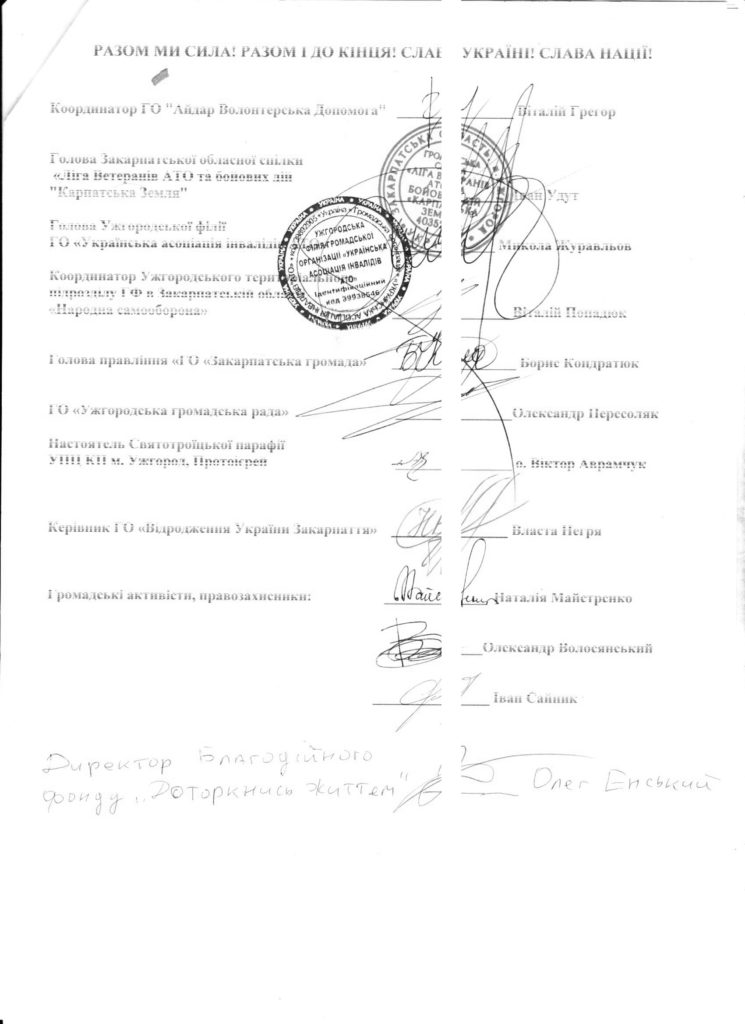 РАЗОМ МИ СИЛА! РАЗОМ І ДО КІНЦЯ! СЛАВ УКРАЇНІ! СЛАВА НАЦІЇ!
Координатор ГО "Айдар Волонтерська Допомога" Віталій Грегор
Голова Закарпатської обласної спілки
«Ліга Ветеранів АТО та бойових дій
"Карпатська Земля" Іван Удут
Голова Ужгородської філії
ГО «Українська асоціація інвалідів Микола Журавльов
Координатор Ужгородського територіального
підрозділу ГФ в Закарпатській
«Народна самооборона» Віталій Попадюк
Голова правління «ГО «Закарпатська громада» Борис Кондратюк
ГО «Ужгородська громадська рада» Олександр Пересоляк
Настоятель Святотроїцької парафії
УПЦ КП м. Ужгород, Протоієрей о. Віктор Аврамчук
Керівник ГО «Відродження України Закарпаття» Власта Негря
Громадські активісти, правозахисники: Наталія Майстренко
Олександр Волосянський
Іван Сайник
Директор Благодійного
фонду „Доторкнись життєм" Олег Енський
УЖГОРОДСЬКА
ФІЛІЯ ГРОМАДСЬКОЇ
ОРГАНІЗАЦІЇ «УКРАЇНСЬКА
АСОЦІАЦІЯ ІНВАЛІДІВ
АТО»
Ідентифікаційний
код 39938646